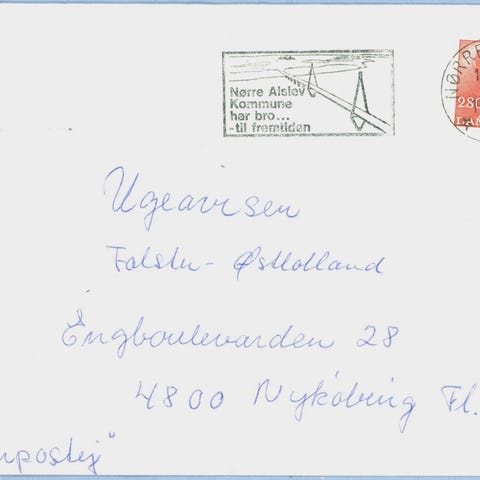 Nørre Alslev
Kommune
har bro...
-til fremtiden
NØRRE
2.80
DAN
Ugeavisen
Falster - Østlolland
Engboulevarden 28
4800 Nykøbing Fl.